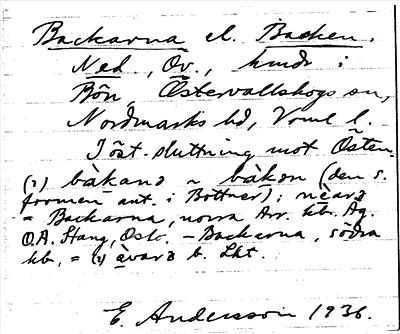 Backarna el. Backen.
Ned., Öv., hmdr i
Rön, Östervallskogs sn,
Nordmarks hd, Vrml l.
I öst. sluttning mot Östen.
(1) bàkana ~ bàkən (den s.
formen ant. i Bottner);
= Backarna, norra Arr. kb. Äg.
O.A. Stang, Oslo. – Backarna, södra
kb, = (1) b. Lht.
E. Andersson 1936.